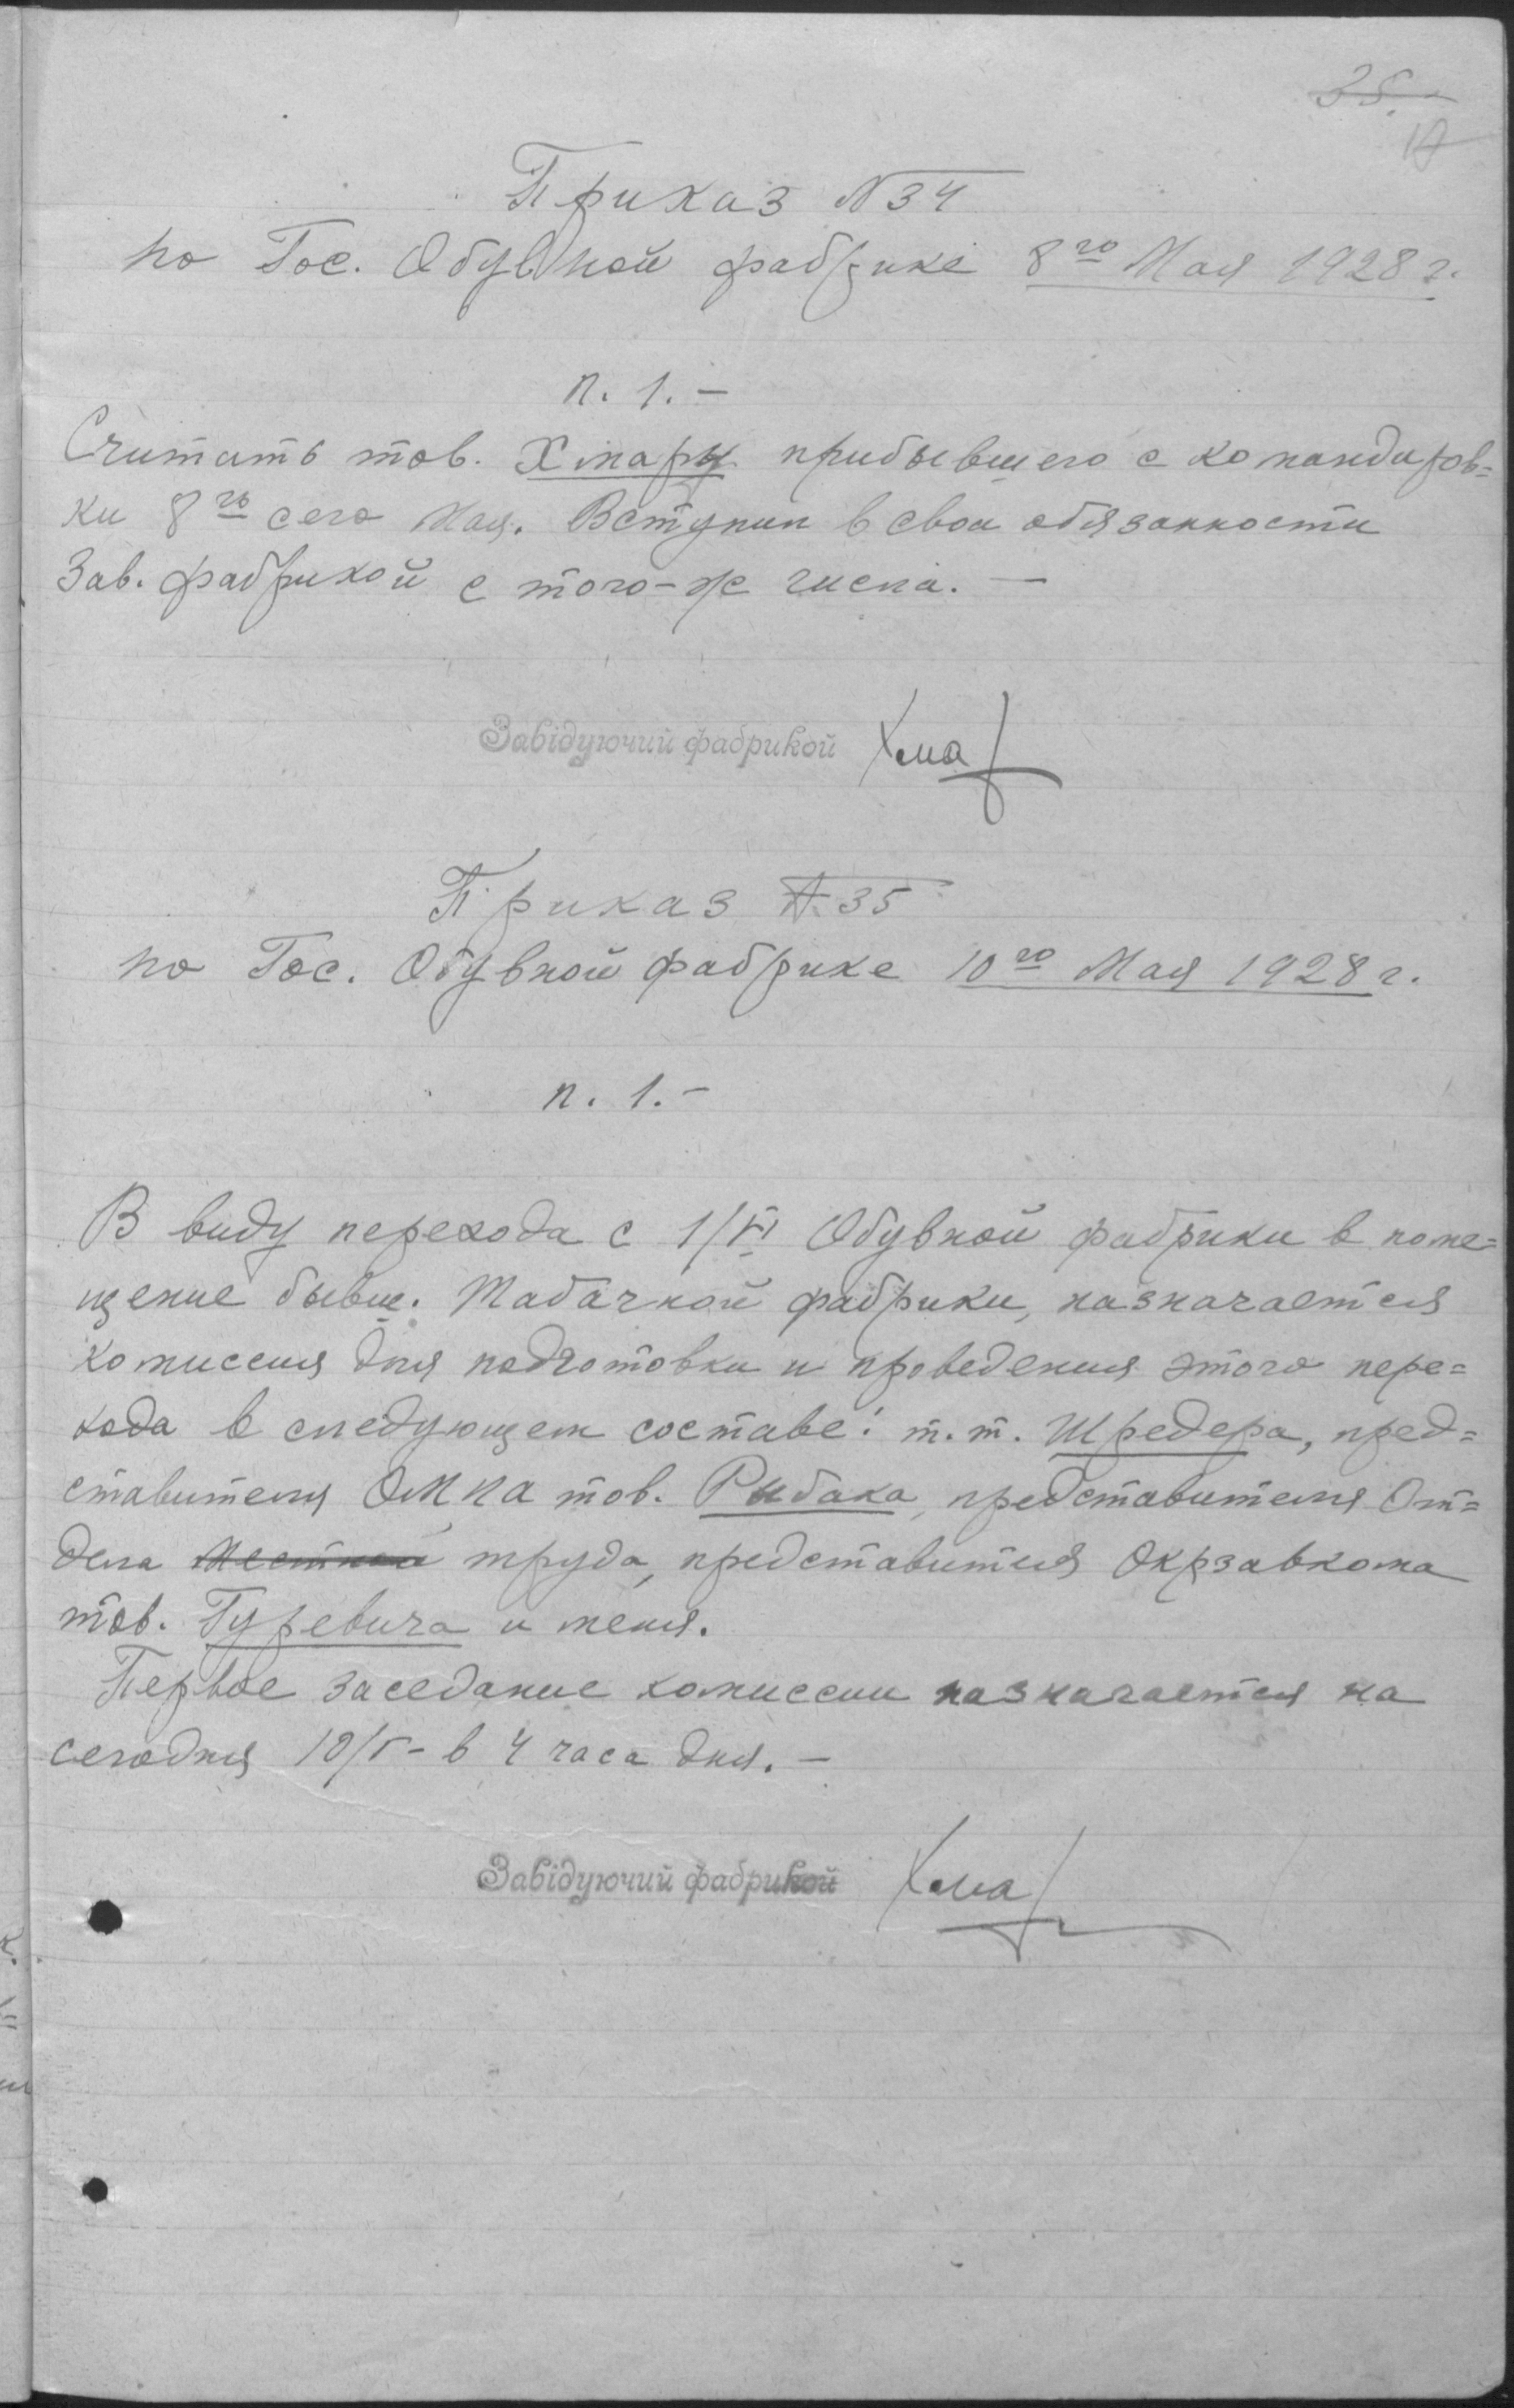 35.
Приказ N 34
по Гос. Обувной фабрике 8го Мая 1928 г.
п. 1. —
Считать тов. Хмару прибывшего с командиров=
ки 8го сего Мая. Вступил в свои обязанности
Зав. фабрикой с того-же числа. —
Завідуючий фабрикой Хмар
Приказ N 35
по Гос. Обувной фабрике 10го Мая 1928 г.
п. 1. —
В виду перехода с 1/VI Обувной фабрики в поме=
щение бывш. Табачной фабрики, назначается
комиссия для подготовки и проведения этого пере=
хода в следующем составе: т.т. Шредера, пред=
ставителя ОМХа тов. Рыбака, представителя От=
дела Местной труда, представителя Окрзавкома
тов. Гуревича и меня.
Первое заседание комиссии назначается на
сегодня 10/V - в 4 часа дня. —
Завідуючий фабрикой Хмар